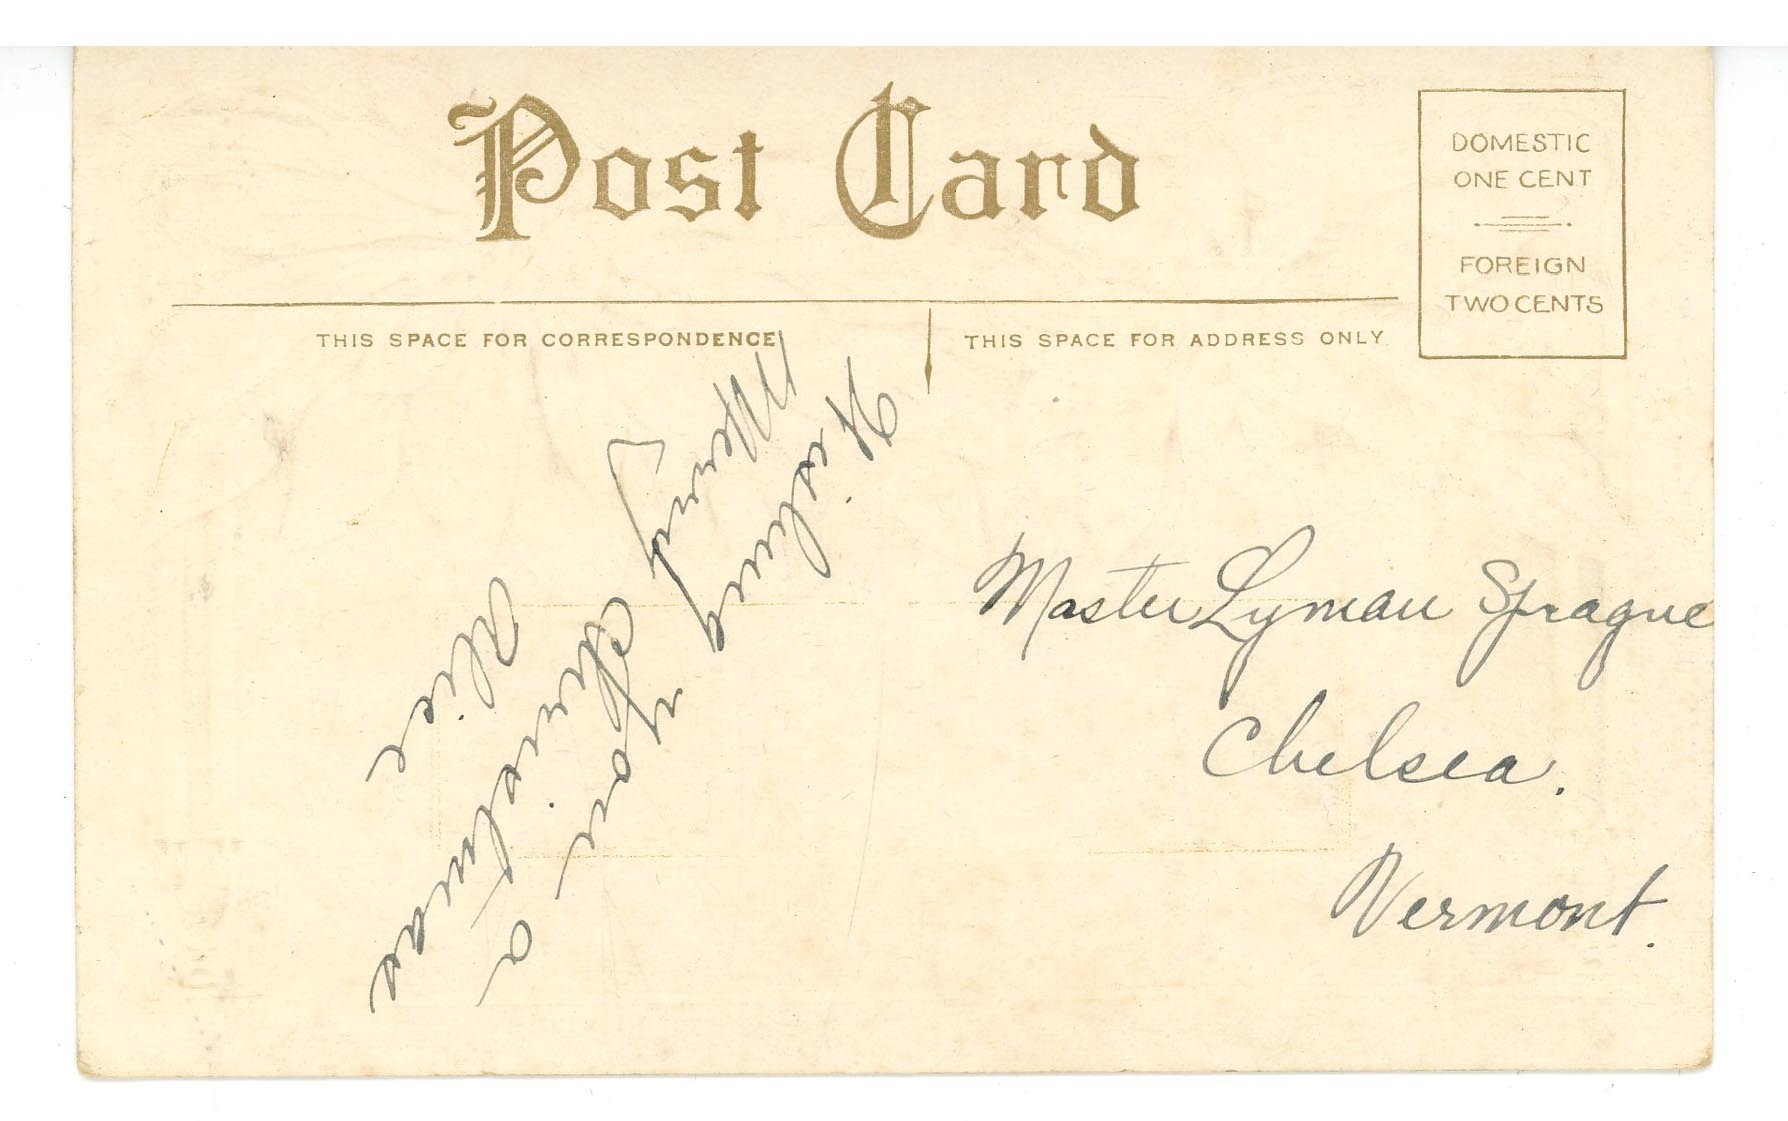 Post Card
DOMESTIC
ONE CENT
FOREIGN
TWO CENTS
THIS SPACE FOR CORRESPONDENCE
THIS SPACE FOR ADDRESS ONLY
Wishing you a
Merry Christmas
Alice
Master Lyman Sprague
Chelsea.
Vermont.